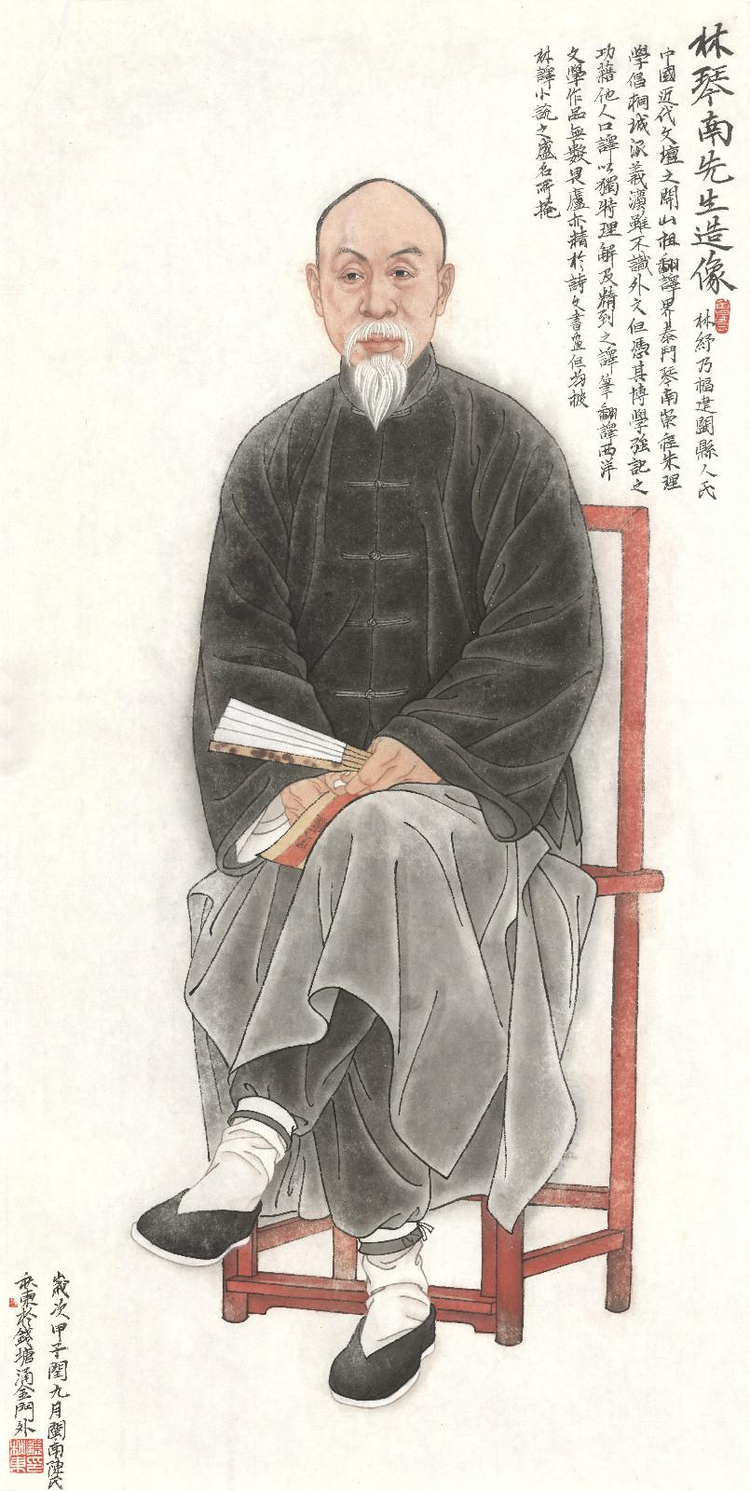 林琴南先生造像
林紓乃福建閩縣人氏
中國近代文壇之開山祖翻譯界泰鬥琴南崇程朱理
學倡桐城派義灋雖不識外文但憑其博學強記之
功藉他人口譯以獨特理解及精到之譯筆翻譯西洋
文學作品無數畏廬亦精於詩文書畫但均被
林譯小說之盛名所掩
歲次甲子閏九月閩南陳氏
林東於錢塘涌金門外